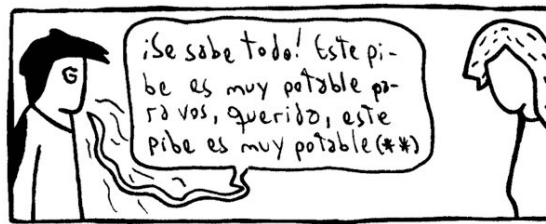 ¡Se sabe todo! Este pi-
be es muy potable pa-
ra vos, querida, este
pibe es muy potable(**)